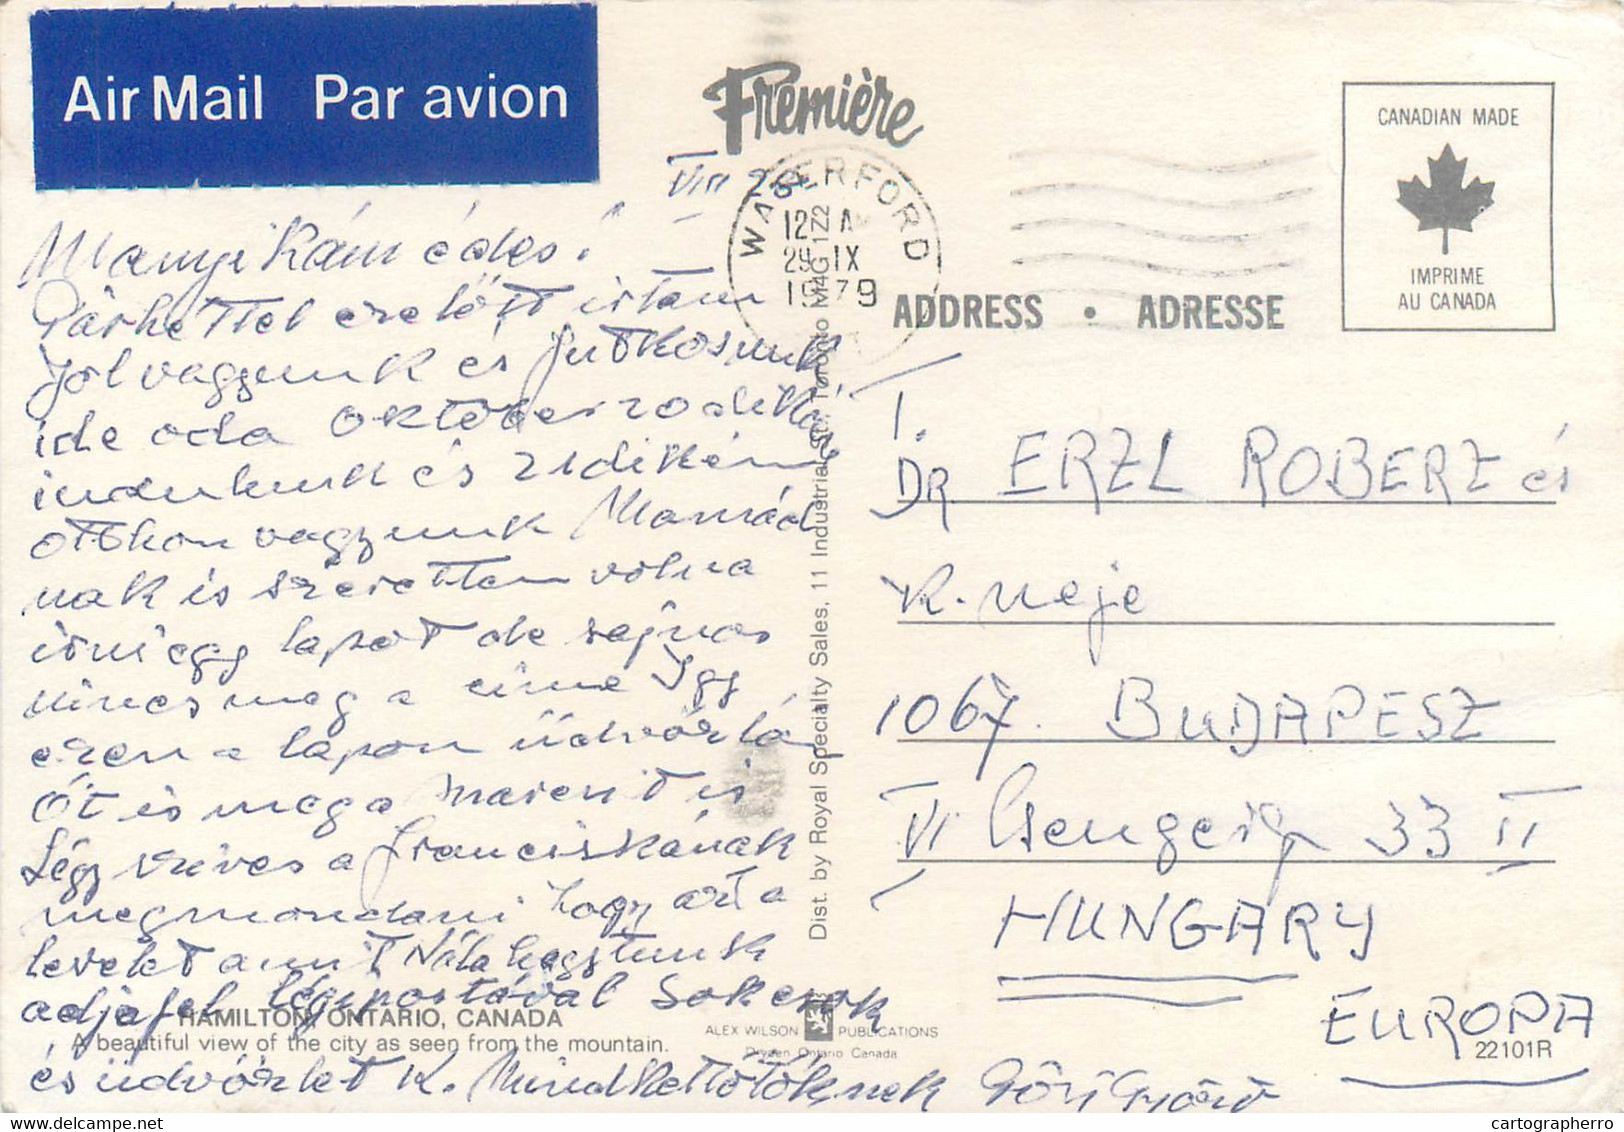 Air Mail Par avion
Première
VIII 28
WATERFORD
12 AM
29 IX
1979
CANADIAN MADE
IMPRIME
AU CANADA
ADDRESS • ADRESSE
Manyikám édes!
Pár héttel ezelőtt irtam
Jól vagyunk és futkosunk
ide oda október 20 dikán
indulunk és 21 dikén
otthon vagyunk Mamád
nak is szerettem volna
irni egy lapot de sajnos
nincs meg a cime Igy
ezen a lapon üdvözlöm
Őt és maga is
Légy szives a Franciskának
megmondani hogy azt a
levelet amit Nála hagytunk
adja fel légipostával Sokszor
és üdvözlet K. Mindkettőtöknek Göri Györg
Dist. by Royal Specialty Sales, 11 Industrial St., Toronto M4G 1Z2
HAMILTON, ONTARIO, CANADA
A beautiful view of the city as seen from the mountain.
ALEX WILSON PUBLICATIONS
Dryden Ontario Canada
22101R
I.
DR ERZL ROBERZ és
K. neje
1067. BUDAPESZ
VI Csengeri 33 II
HUNGARY
EUROPA
cartographerro